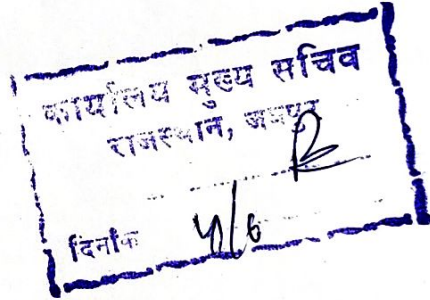 कार्यालय मुख्य सचिव
राजस्थान, जयपुर
दिनांक 4/6